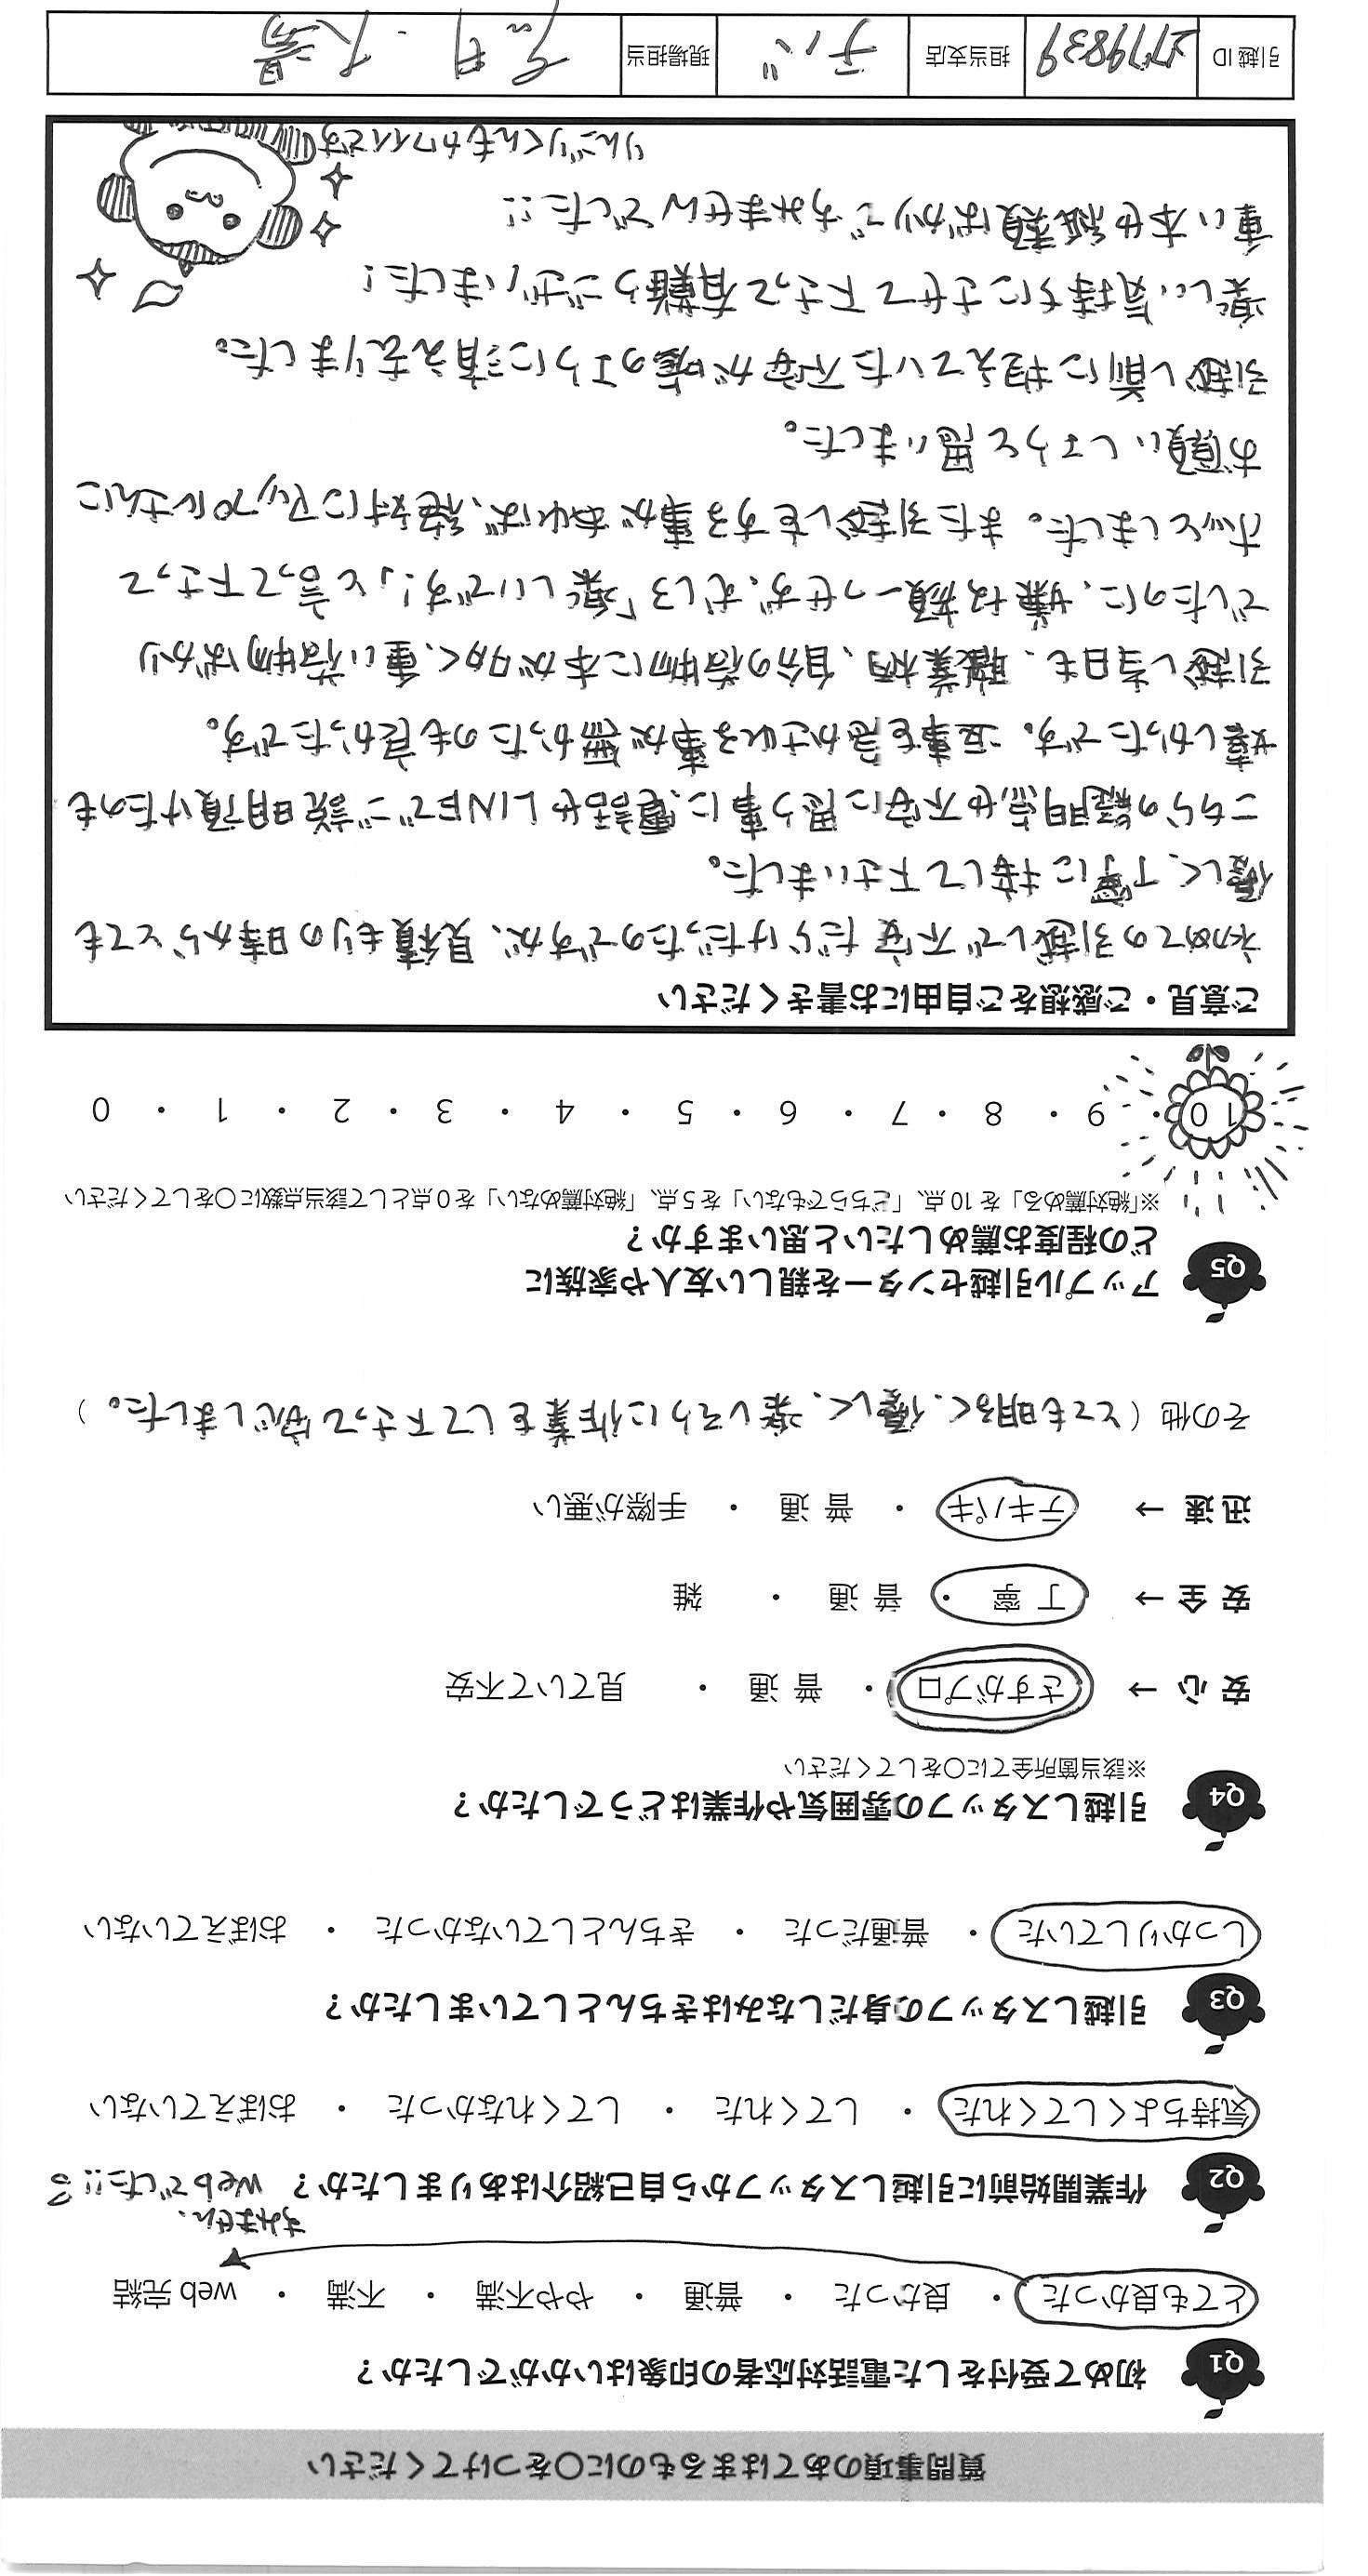 質問事項のあてはまるものに○をつけてください
Q1 初めて受付をした電話対応者の印象はいかがでしたか？
とても良かった ・ 良かった ・ 普通 ・ やや不満 ・ 不満 ・ web 完結
すみません、
webでした!!
Q2 作業開始前に引越しスタッフから自己紹介はありましたか？
気持ちよくしてくれた ・ してくれた ・ してくれなかった ・ おぼえていない
Q3 引越しスタッフの身だしなみはきちんとしていましたか？
しっかりしていた ・ 普通だった ・ きちんとしていなかった ・ おぼえていない
Q4 引越しスタッフの雰囲気や作業はどうでしたか？
※該当箇所全てに○をしてください
安 心 → さすがプロ ・ 普 通 ・ 見ていて不安
安 全 → 丁 寧 ・ 普 通 ・ 雑
迅 速 → テキパキ ・ 普 通 ・ 手際が悪い
その他（とても明るく、優しく、楽しそうに作業をして下さって安心しました。）
Q5 アップル引越センターを親しい友人や家族に
どの程度お薦めしたいと思いますか？
※「絶対薦める」を 10 点、「どちらでもない」を 5 点、「絶対薦めない」を 0 点として該当点数に○をしてください
10 ・ 9 ・ 8 ・ 7 ・ 6 ・ 5 ・ 4 ・ 3 ・ 2 ・ 1 ・ 0
ご意見・ご感想をご自由にお書きください
初めての引越しで不安だらけだったのですが、見積もりの時からとても
優しく、丁寧に接して下さいました。
こちらの疑問点や不安に思う事に、電話やLINEでご説明頂けたのも
嬉しかったです。返事を急かされる事が無かったのも良かったです。
引越し当日も、職業柄、自分の荷物に本が多く、重い荷物ばかり
でしたのに、嫌な顔一つせず、むしろ「楽しいです!」と言って下さって
ホッとしました。また引越しをする事があれば、絶対にアップルさんに
お願いしようと思いました。
引越し前に抱えていた不安が嘘のように消え去りました。
楽しい気持ちにさせて下さって有難うございました!
重い本や紙類ばかりですみませんでした!!
りんごりくんもカワイイです
引越 ID 2779839 担当支店 チバ 現場担当